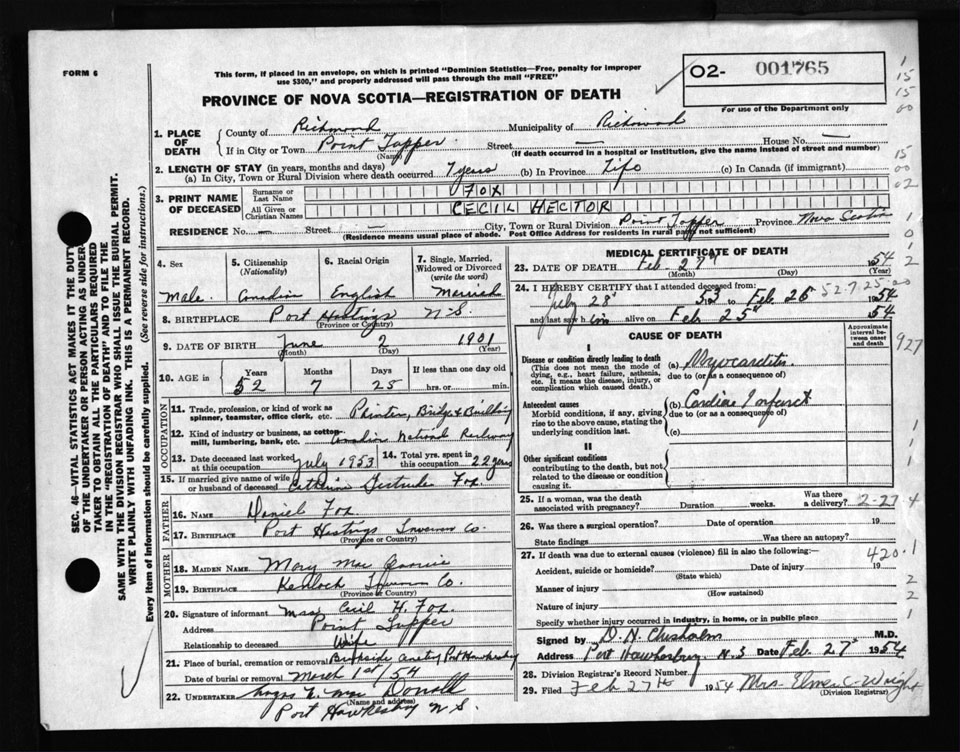 FORM 6
This form, if placed in an envelope, on which is printed "Dominion Statistics—Free, penalty for improper
use $300," and properly addressed will pass through the mail "FREE"
O2- 001765
For use of the Department only
PROVINCE OF NOVA SCOTIA—REGISTRATION OF DEATH
1. PLACE OF DEATH { County of Richmond Municipality of Richmond
If in City or Town Point Tupper (Name) Street — House No. —
(If death occurred in a hospital or institution, give the name instead of street and number)
2. LENGTH OF STAY (in years, months and days)
(a) In City, Town or Rural Division where death occurred 7 years (b) In Province Life (c) In Canada (if immigrant)
3. PRINT NAME OF DECEASED { Surname or Last Name FOX
All Given or Christian Names CECIL HECTOR
RESIDENCE No. — Street — City, Town or Rural Division Point Tupper Province Nova Scotia
(Residence means usual place of abode. Post Office Address for residents in rural parts not sufficient)
4. Sex Male
5. Citizenship (Nationality) Canadian
6. Racial Origin English
7. Single, Married, Widowed or Divorced (write the word) Married
8. BIRTHPLACE Port Hastings N.S.
(Province or Country)
9. DATE OF BIRTH June 2 1901
(Month) (Day) (Year)
10. AGE in { Years 52 Months 7 Days 25 If less than one day old hrs. or min.
OCCUPATION
11. Trade, profession, or kind of work as spinner, teamster, office clerk, etc. Painter, Bridge & Building
12. Kind of industry or business, as cotton-mill, lumbering, bank, etc. Canadian National Railway
13. Date deceased last worked at this occupation July 1953
14. Total yrs. spent in this occupation 22 years
15. If married give name of wife or husband of deceased Catherine Gertrude Fox
FATHER
16. NAME Daniel Fox
17. BIRTHPLACE Port Hastings Inverness Co.
(Province or Country)
MOTHER
18. MAIDEN NAME Mary Mac
19. BIRTHPLACE Co.
(Province or Country)
20. Signature of informant Cecil H. Fox
Address Point Tupper
Relationship to deceased Wife
21. Place of burial, cremation or removal Port Hawkesbury
Date of burial or removal March 1st/54
22. UNDERTAKER Angus Mac Donald
(Name and address)
Port Hawkesbury N S.
MEDICAL CERTIFICATE OF DEATH
23. DATE OF DEATH Feb. 27th 1954
(Month) (Day) (Year)
24. I HEREBY CERTIFY that I attended deceased from:
July 28 53 to Feb. 26 1954
and last saw him alive on Feb 25 54
CAUSE OF DEATH
Approximate interval between onset and death
I
Disease or condition directly leading to death
(This does not mean the mode of dying, e.g., heart failure, asthenia, etc. It means the disease, injury, or complication which caused death.)
(a) Myocarditis
due to (or as a consequence of)
Antecedent causes
Morbid conditions, if any, giving rise to the above cause, stating the underlying condition last.
(b) Cardiac Infarct
due to (or as a consequence of)
(c)
II
Other significant conditions
contributing to the death, but not related to the disease or condition causing it.
25. If a woman, was the death associated with pregnancy? Duration weeks. Was there a delivery?
2-27 4
26. Was there a surgical operation? Date of operation 19
State findings Was there an autopsy?
27. If death was due to external causes (violence) fill in also the following:—
420.1
Accident, suicide or homicide? (State which) Date of injury 19
Manner of injury (How sustained)
Nature of injury
Specify whether injury occurred in industry, in home, or in public place
Signed by D. H. Chisholm M.D.
Address Port Hawkesbury N.S Date Feb. 27th 1954
28. Division Registrar's Record Number
29. Filed Feb 27th 1954 Mrs. Elmer C. Wright
(Division Registrar)
SEC. 46—VITAL STATISTICS ACT MAKES IT THE DUTY
OF THE UNDERTAKER OR PERSON ACTING AS UNDER-
TAKER TO OBTAIN ALL THE PARTICULARS REQUIRED
IN THE "REGISTRATION OF DEATH" AND TO FILE THE
SAME WITH THE DIVISION REGISTRAR WHO SHALL ISSUE THE BURIAL PERMIT.
WRITE PLAINLY WITH UNFADING INK. THIS IS A PERMANENT RECORD.
Every item of information should be carefully supplied. (See reverse side for instructions.)